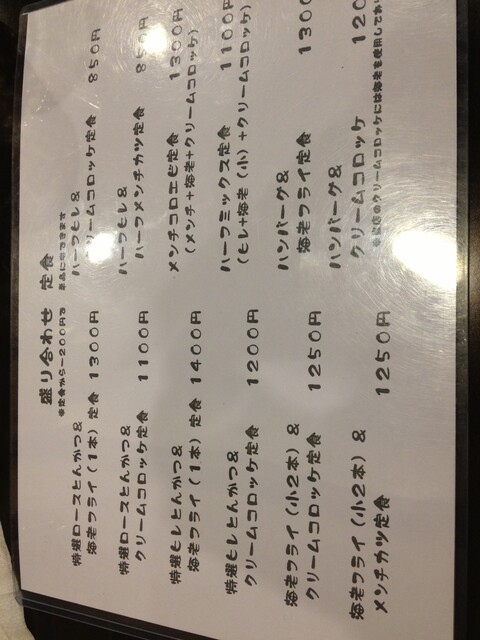 盛り合わせ 定食
※定食から−200円で 単品にできます
特選ロースとんかつ&
海老フライ(1本)定食 1300円
特選ロースとんかつ&
クリームコロッケ定食 1100円
特選ヒレとんかつ&
海老フライ(1本)定食 1400円
特選ヒレとんかつ&
クリームコロッケ定食 1200円
海老フライ(小2本)&
クリームコロッケ定食 1250円
海老フライ(小2本)&
メンチカツ定食 1250円
ハーフヒレ&
クリームコロッケ定食 850円
ハーフヒレ&
ハーフメンチカツ定食 850円
メンチコロエビ定食 1300円
(メンチ+海老+クリームコロッケ)
ハーフミックス定食 1100円
(ヒレ+海老(小)+クリームコロッケ)
ハンバーグ&
海老フライ定食 1300
ハンバーグ&
クリームコロッケ 120
※当店のクリームコロッケには海老を使用してお